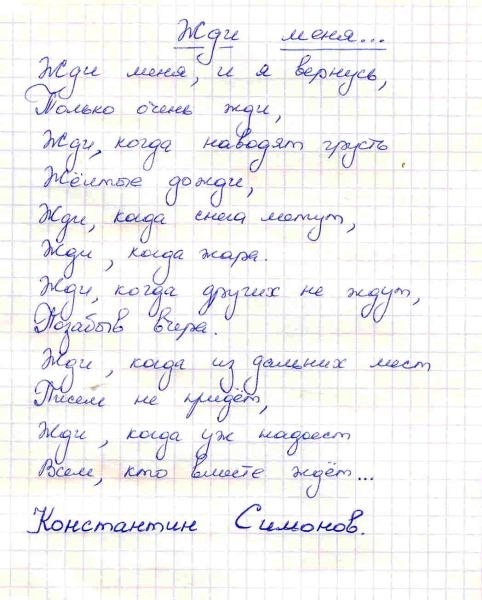 Жди меня...
Жди меня, и я вернусь,
Только очень жди,
Жди, когда наводят грусть
Жёлтые дожди,
Жди, когда снега метут,
Жди, когда жара.
Жди, когда других не ждут,
Позабыв вчера.
Жди, когда из дальних мест
Писем не придёт,
Жди, когда уж надоест
Всем, кто вместе ждёт...
Константин Симонов.